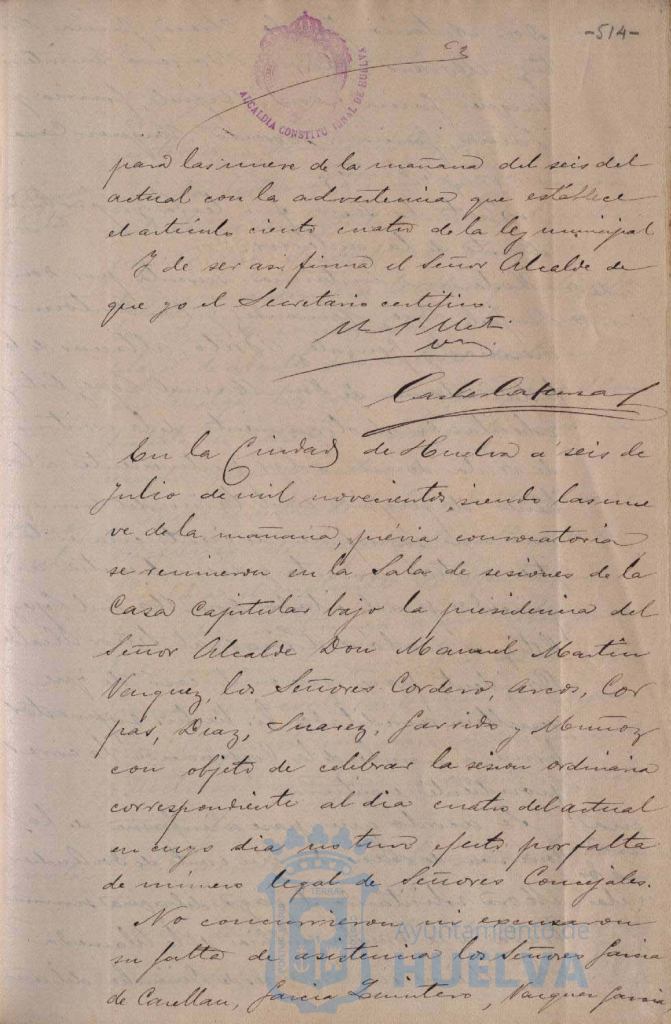 -514-
ALCALDIA CONSTITUCIONAL DE HUELVA
para las nueve de la mañana del seis del
actual con la advertencia que establece
el artículo ciento cuatro de la ley municipal
Y de ser asi firma el Señor Alcalde de
que yo el Secretario certifico.
En la Ciudad de Huelva á seis de
Julio de mil novecientos, siendo las nue
ve de la mañana, prévia convocatoria
se reunieron en la Sala de sesiones de la
Casa Capitular bajo la presidencia del
Señor Alcalde Don Manuel Martin
Vazquez, los Señores Cordero, Arcos, Cor
pas, Diaz, Suarez, Garrido y Muñoz
con objeto de celebrar la sesion ordinaria
correspondiente al dia cuatro del actual
en cuyo dia no tuvo efecto por falta
de número legal de Señores Concejales.
No concurrieron ni excusaron
su falta de asistencia los Señores Garcia
de Carellan, Garcia Quintero, Vazquez Garcia
Ayuntamiento de
HUELVA